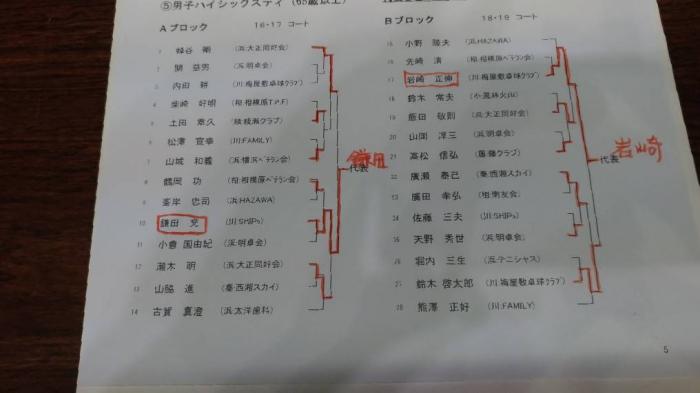 ⑤男子ハイシックスティ (65歳以上)
Aブロック 16・17 コート
蜂谷 剛 (浜:大正同好会)
関 益男 (浜:明卓会)
内田 耕 (川:梅屋敷卓球クラブ)
4 柴崎 好明 (相:相模原T.P.F)
土田 章久 (綾:綾瀬クラブ)
6 松澤 宣幸 (川:FAMILY)
7 山城 和義 (浜:横浜ベテラン会)
8 鶴岡 功 (相:相模原ベテラン会)
9 峯岸 忠司 (浜:HAZAWA)
10 鎌田 充 (川:SHIPs)
11 小倉 国由紀 (浜:明卓会)
12 瀬木 明 (浜:大正同好会)
13 山脇 進 (秦:西湘スカイ)
14 古賀 真澄 (浜:太洋歯科)
代表
鎌田
Bブロック 18・19 コート
15 小野 隆夫 (浜:HAZAWA)
16 先崎 清 (相:相模原ベテラン会)
17 岩崎 正伸 (川:梅屋敷卓球クラブ)
18 鈴木 常夫 (小:風林火山)
19 飯田 敬則 (浜:大正同好会)
20 山岡 淳三 (浜:明卓会)
21 高松 信弘 (藤クラブ)
22 廣瀬 泰己 (秦:西湘スカイ)
23 廣田 幸弘 (相:衛友会)
24 佐藤 三夫 (川:SHIPs)
25 天野 秀世 (浜:明卓会)
26 堀内 三生 (浜:テニシャス)
27 鈴木 啓太郎 (川:梅屋敷卓球クラブ)
28 熊澤 正好 (川:FAMILY)
代表
岩崎
5